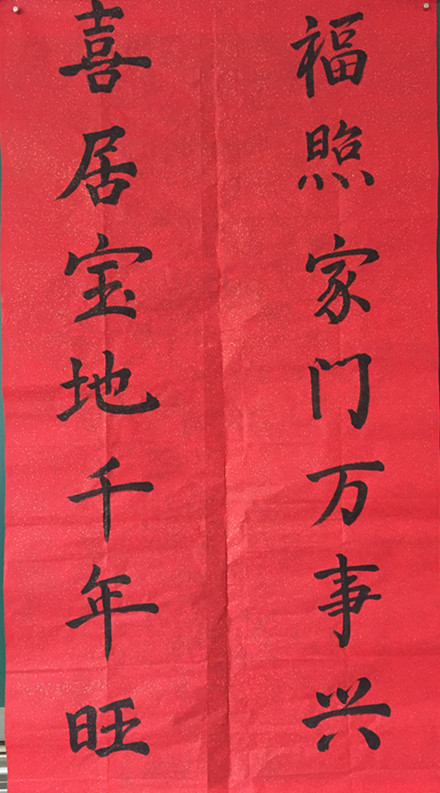 福照家门万事兴
喜居宝地千年旺